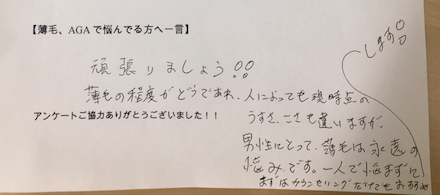 【薄毛、AGAで悩んでる方へ一言】
頑張りましょう!!
薄毛の程度がどうであれ、人によっても現時点の
うすさ、こさも違いますが、
男性にとって、薄毛は永遠の
悩みです。一人で悩まずに
まずはカウンセリングだけでもお勧め
します!!
アンケートご協力ありがとうございました!!